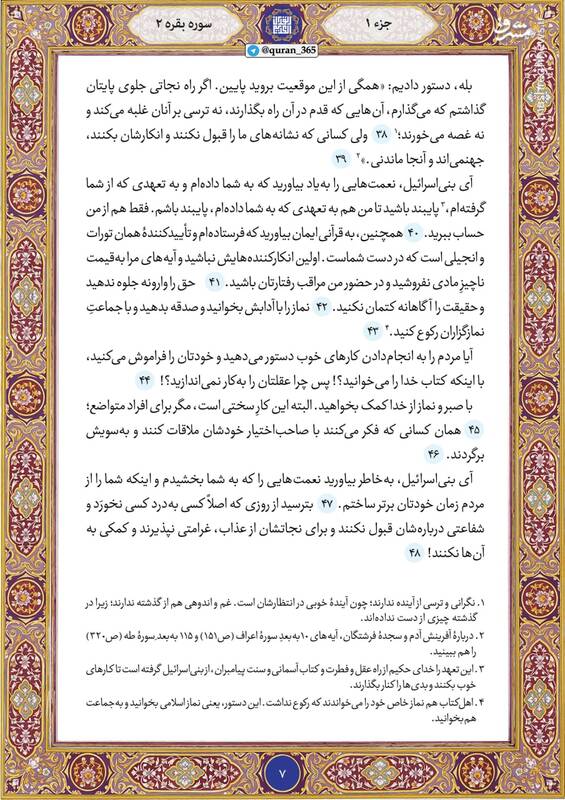 جزء ۱
سوره بقره ۲
@quran_365
مشرق
بله، دستور دادیم: «همگی از این موقعیت بروید پایین. اگر راه نجاتی جلوی پایتان
گذاشتم که می‌گذارم، آن‌هایی که قدم در آن راه بگذارند، نه ترسی بر آنان غلبه می‌کند و
نه غصه می‌خورند؛۱ ۳۸ ولی کسانی که نشانه‌های ما را قبول نکنند و انکارشان بکنند،
جهنمی‌اند و آنجا ماندنی.»۲ ۳۹
آی بنی‌اسرائیل، نعمت‌هایی را به‌یاد بیاورید که به شما داده‌ام و به تعهدی که از شما
گرفته‌ام،۳ پایبند باشید تا من هم به تعهدی که به شما داده‌ام، پایبند باشم. فقط هم از من
حساب ببرید. ۴۰ همچنین، به قرآنی ایمان بیاورید که فرستاده‌ام و تأییدکنندهٔ همان تورات
و انجیلی است که در دست شماست. اولین انکارکننده‌هایش نباشید و آیه‌های مرا به‌قیمت
ناچیز مادی نفروشید و در حضور من مراقب رفتارتان باشید. ۴۱ حق را وارونه جلوه ندهید
و حقیقت را آگاهانه کتمان نکنید. ۴۲ نماز را با آدابش بخوانید و صدقه بدهید و با جماعتِ
نمازگزاران رکوع کنید.۴ ۴۳
آیا مردم را به انجام‌دادن کارهای خوب دستور می‌دهید و خودتان را فراموش می‌کنید،
با اینکه کتاب خدا را می‌خوانید؟! پس چرا عقلتان را به‌کار نمی‌اندازید؟! ۴۴
با صبر و نماز از خدا کمک بخواهید. البته این کار سختی است، مگر برای افراد متواضع؛
۴۵ همان کسانی که فکر می‌کنند با صاحب‌اختیار خودشان ملاقات کنند و به‌سویش
برگردند. ۴۶
آی بنی‌اسرائیل، به‌خاطر بیاورید نعمت‌هایی را که به شما بخشیدم و اینکه شما را از
مردم زمان خودتان برتر ساختم. ۴۷ بترسید از روزی که اصلاً کسی به‌درد کسی نخورَد و
شفاعتی درباره‌شان قبول نکنند و برای نجاتشان از عذاب، غرامتی نپذیرند و کمکی به
آن‌ها نکنند! ۴۸
۱. نگرانی و ترسی از آینده ندارند؛ چون آیندهٔ خوبی در انتظارشان است. غم و اندوهی هم از گذشته ندارند؛ زیرا در
گذشته چیزی از دست نداده‌اند.
۲. دربارهٔ آفرینش آدم و سجدهٔ فرشتگان، آیه‌های ۱۰ به‌بعدِ سورهٔ اعراف (ص۱۵۱) و ۱۱۵ به‌بعدِ سورهٔ طه (ص۳۲۰)
را هم ببینید.
۳. این تعهد را خدای حکیم از راه عقل و فطرت و کتاب آسمانی و سنت پیامبران، از بنی‌اسرائیل گرفته است تا کارهای
خوب بکنند و بدی‌ها را کنار بگذارند.
۴. اهل‌کتاب هم نماز خاص خود را می‌خواندند که رکوع نداشت. این دستور، یعنی نماز اسلامی بخوانید و به‌جماعت
هم بخوانید.
۷